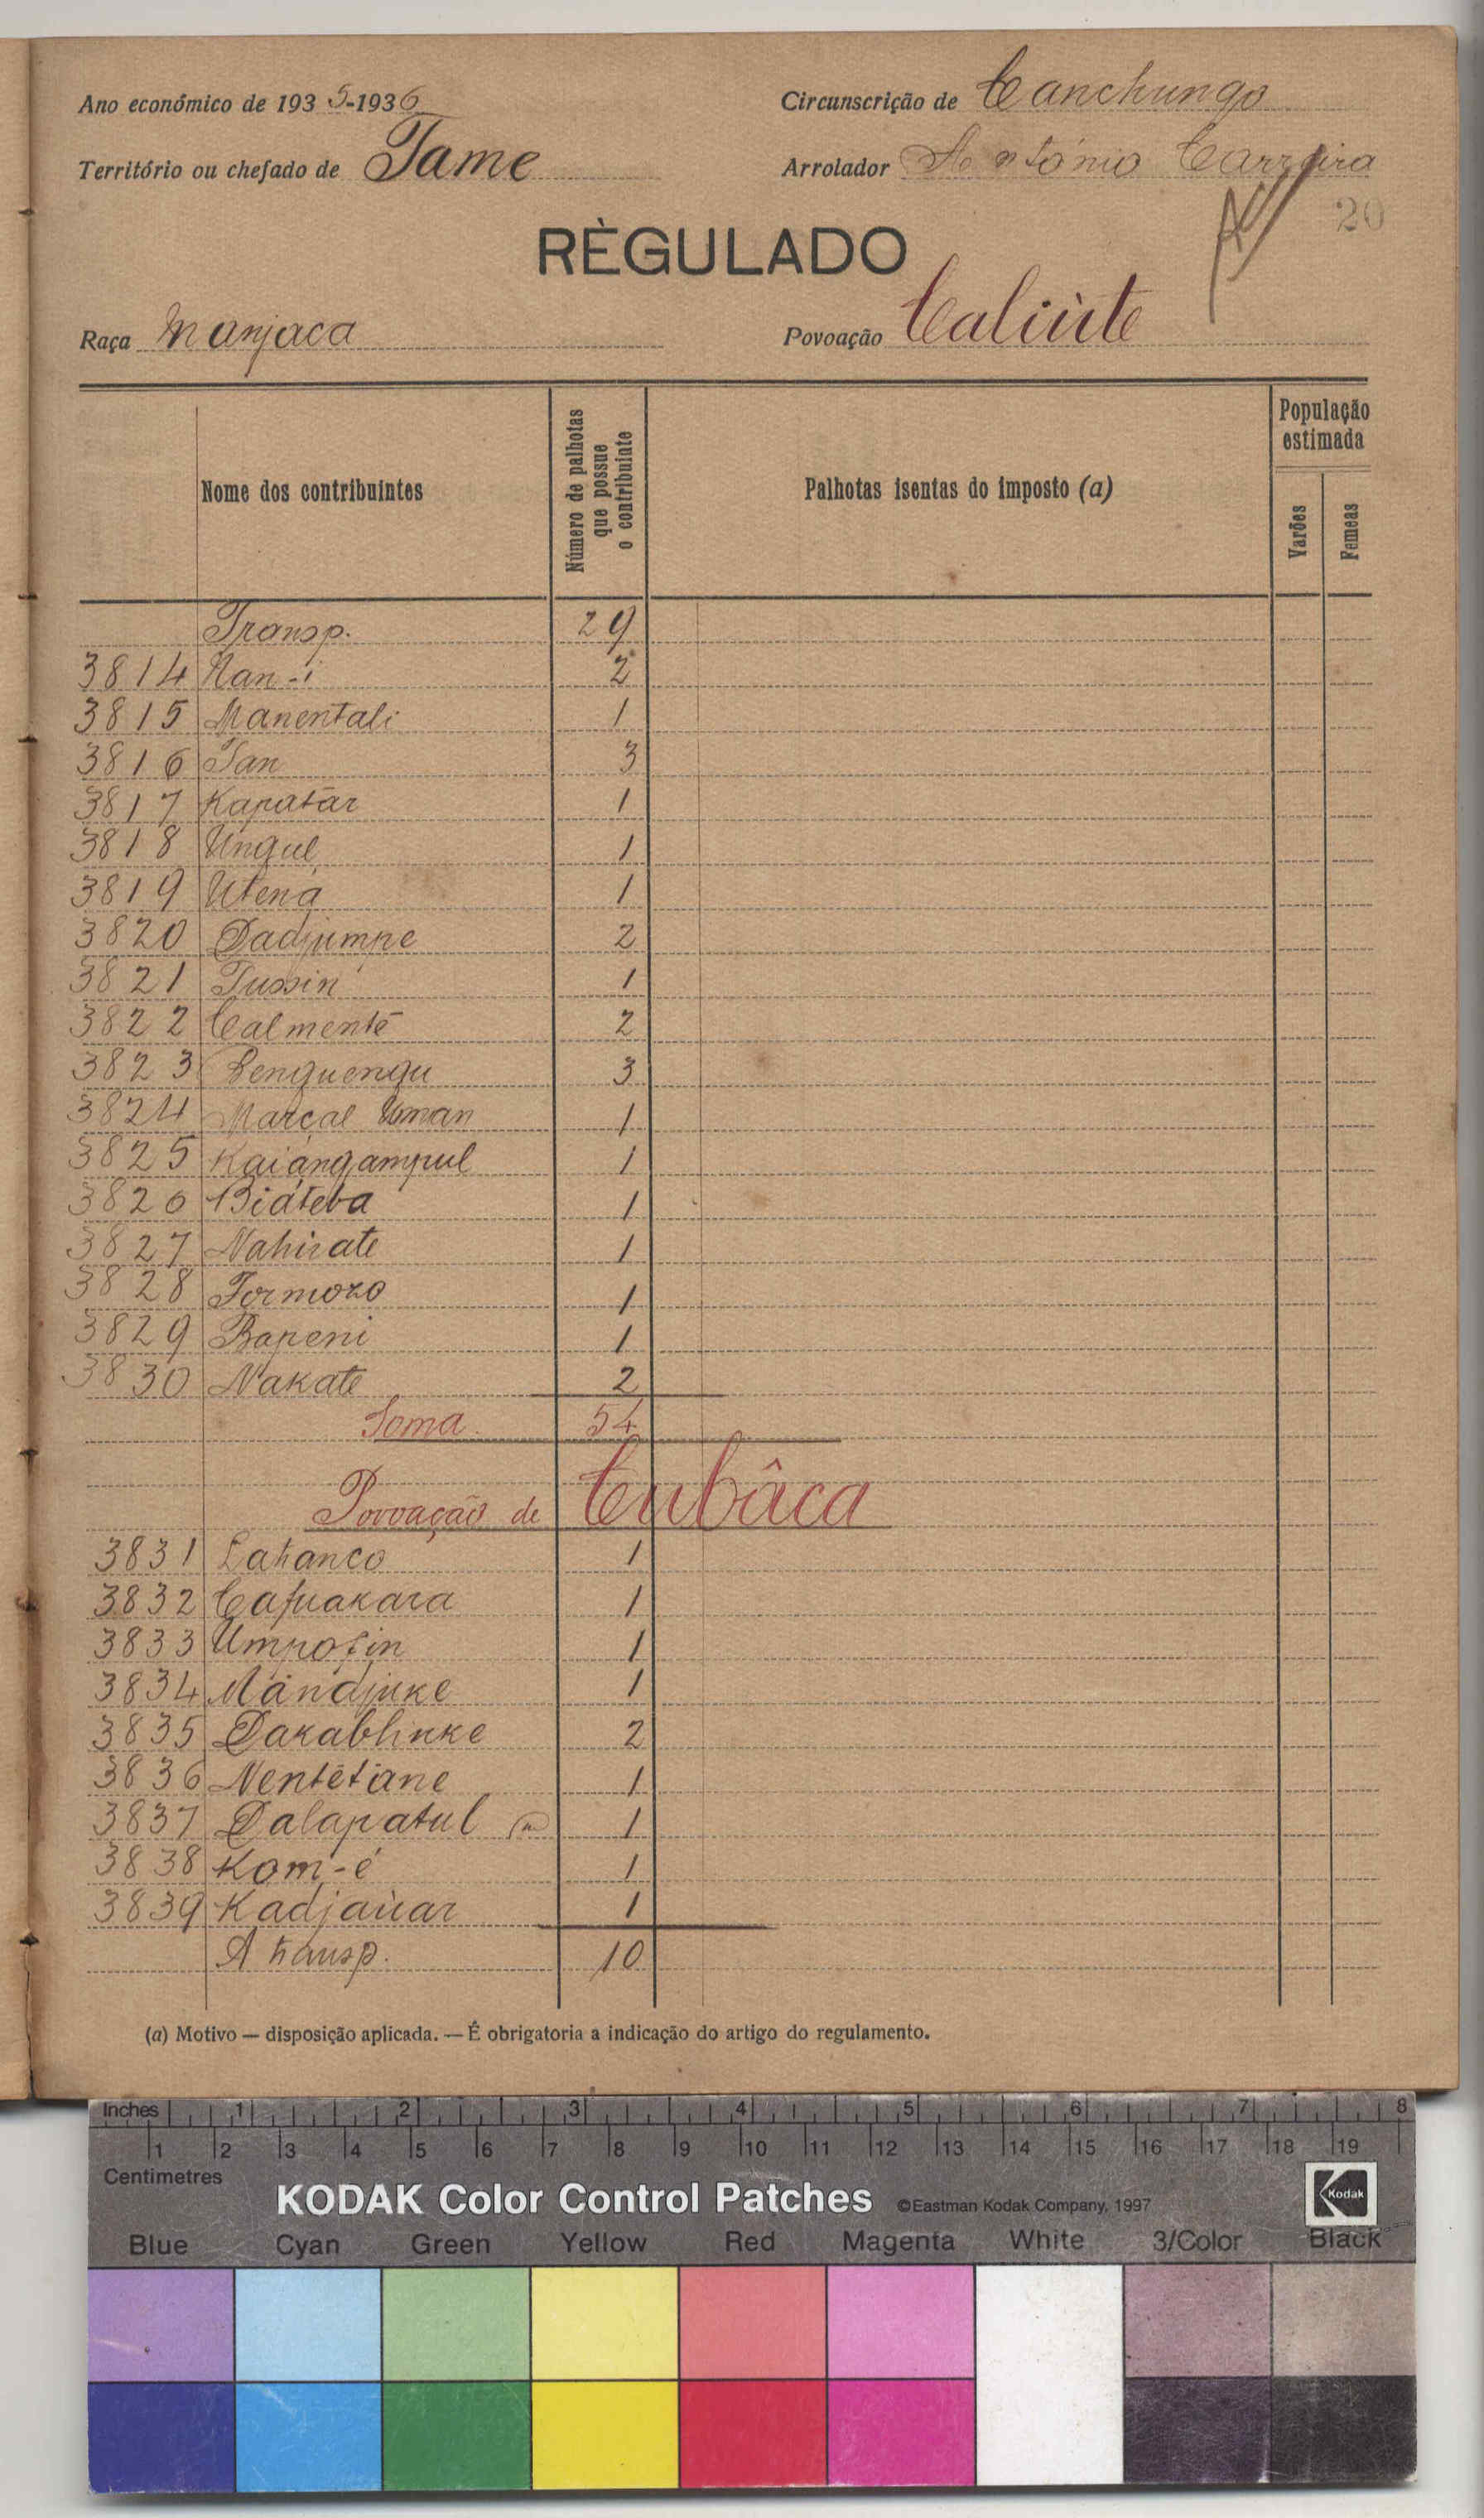 Ano económico de 1935-1936
Circunscrição de Canchungo
Território ou chefado de Tame
Arrolador António Carreira
20
RÈGULADO
Raça Manjaca
Povoação Caliùte
Nome dos contribuintes
Número de palhotas que possue o contribuinte
Palhotas isentas do imposto (a)
População estimada
Varões
Femeas
Transp. 29
3814 Nan-i 2
3815 Manentali 1
3816 Tan 3
3817 Kapatár 1
3818 Ungul 1
3819 Utená 1
3820 Dadjumpe 2
3821 Tussin 1
3822 Calmentê 2
3823 Benguengu 3
3824 Marçal Uman 1
3825 Kaiángampul 1
3826 Biáteba 1
3827 Nahirate 1
3828 Formozo 1
3829 Bapeni 1
3830 Nakate 2
Soma 54
Povoação de Cubâca
3831 Lahanco 1
3832 Cafuakara 1
3833 Umpofin 1
3834 Mándjuke 1
3835 Dakablinke 2
3836 Nentêtiane 1
3837 Dalapatul 1
3838 Kom-é 1
3839 Kadjaùar 1
A transp. 10
(a) Motivo — disposição aplicada. — É obrigatoria a indicação do artigo do regulamento.
Inches 1 2 3 4 5 6 7 8
1 2 3 4 5 6 7 8 9 10 11 12 13 14 15 16 17 18 19
Centimetres
KODAK Color Control Patches ©Eastman Kodak Company, 1997 Kodak
Blue Cyan Green Yellow Red Magenta White 3/Color Black